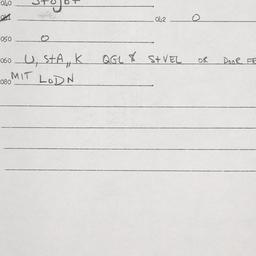 040 Stojot
041 062 0
050 0
060 U, StA,, K QGL & StVEL OR DOOR FE
080 MIT LODN